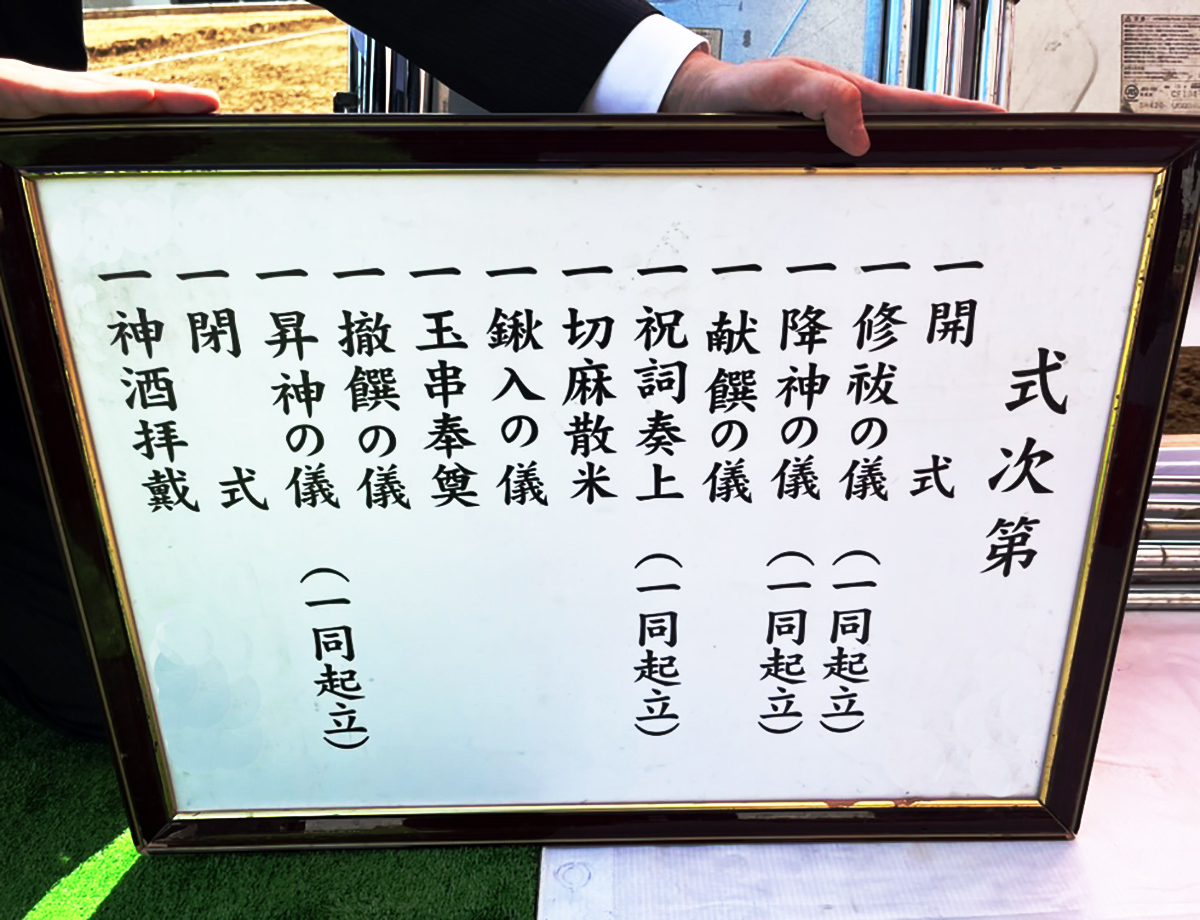 式次第
一 開式
一 修祓の儀 (一同起立)
一 降神の儀 (一同起立)
一 献饌の儀
一 祝詞奏上 (一同起立)
一 切麻散米
一 鍬入の儀
一 玉串奉奠
一 撤饌の儀
一 昇神の儀 (一同起立)
一 閉式
一 神酒拝戴